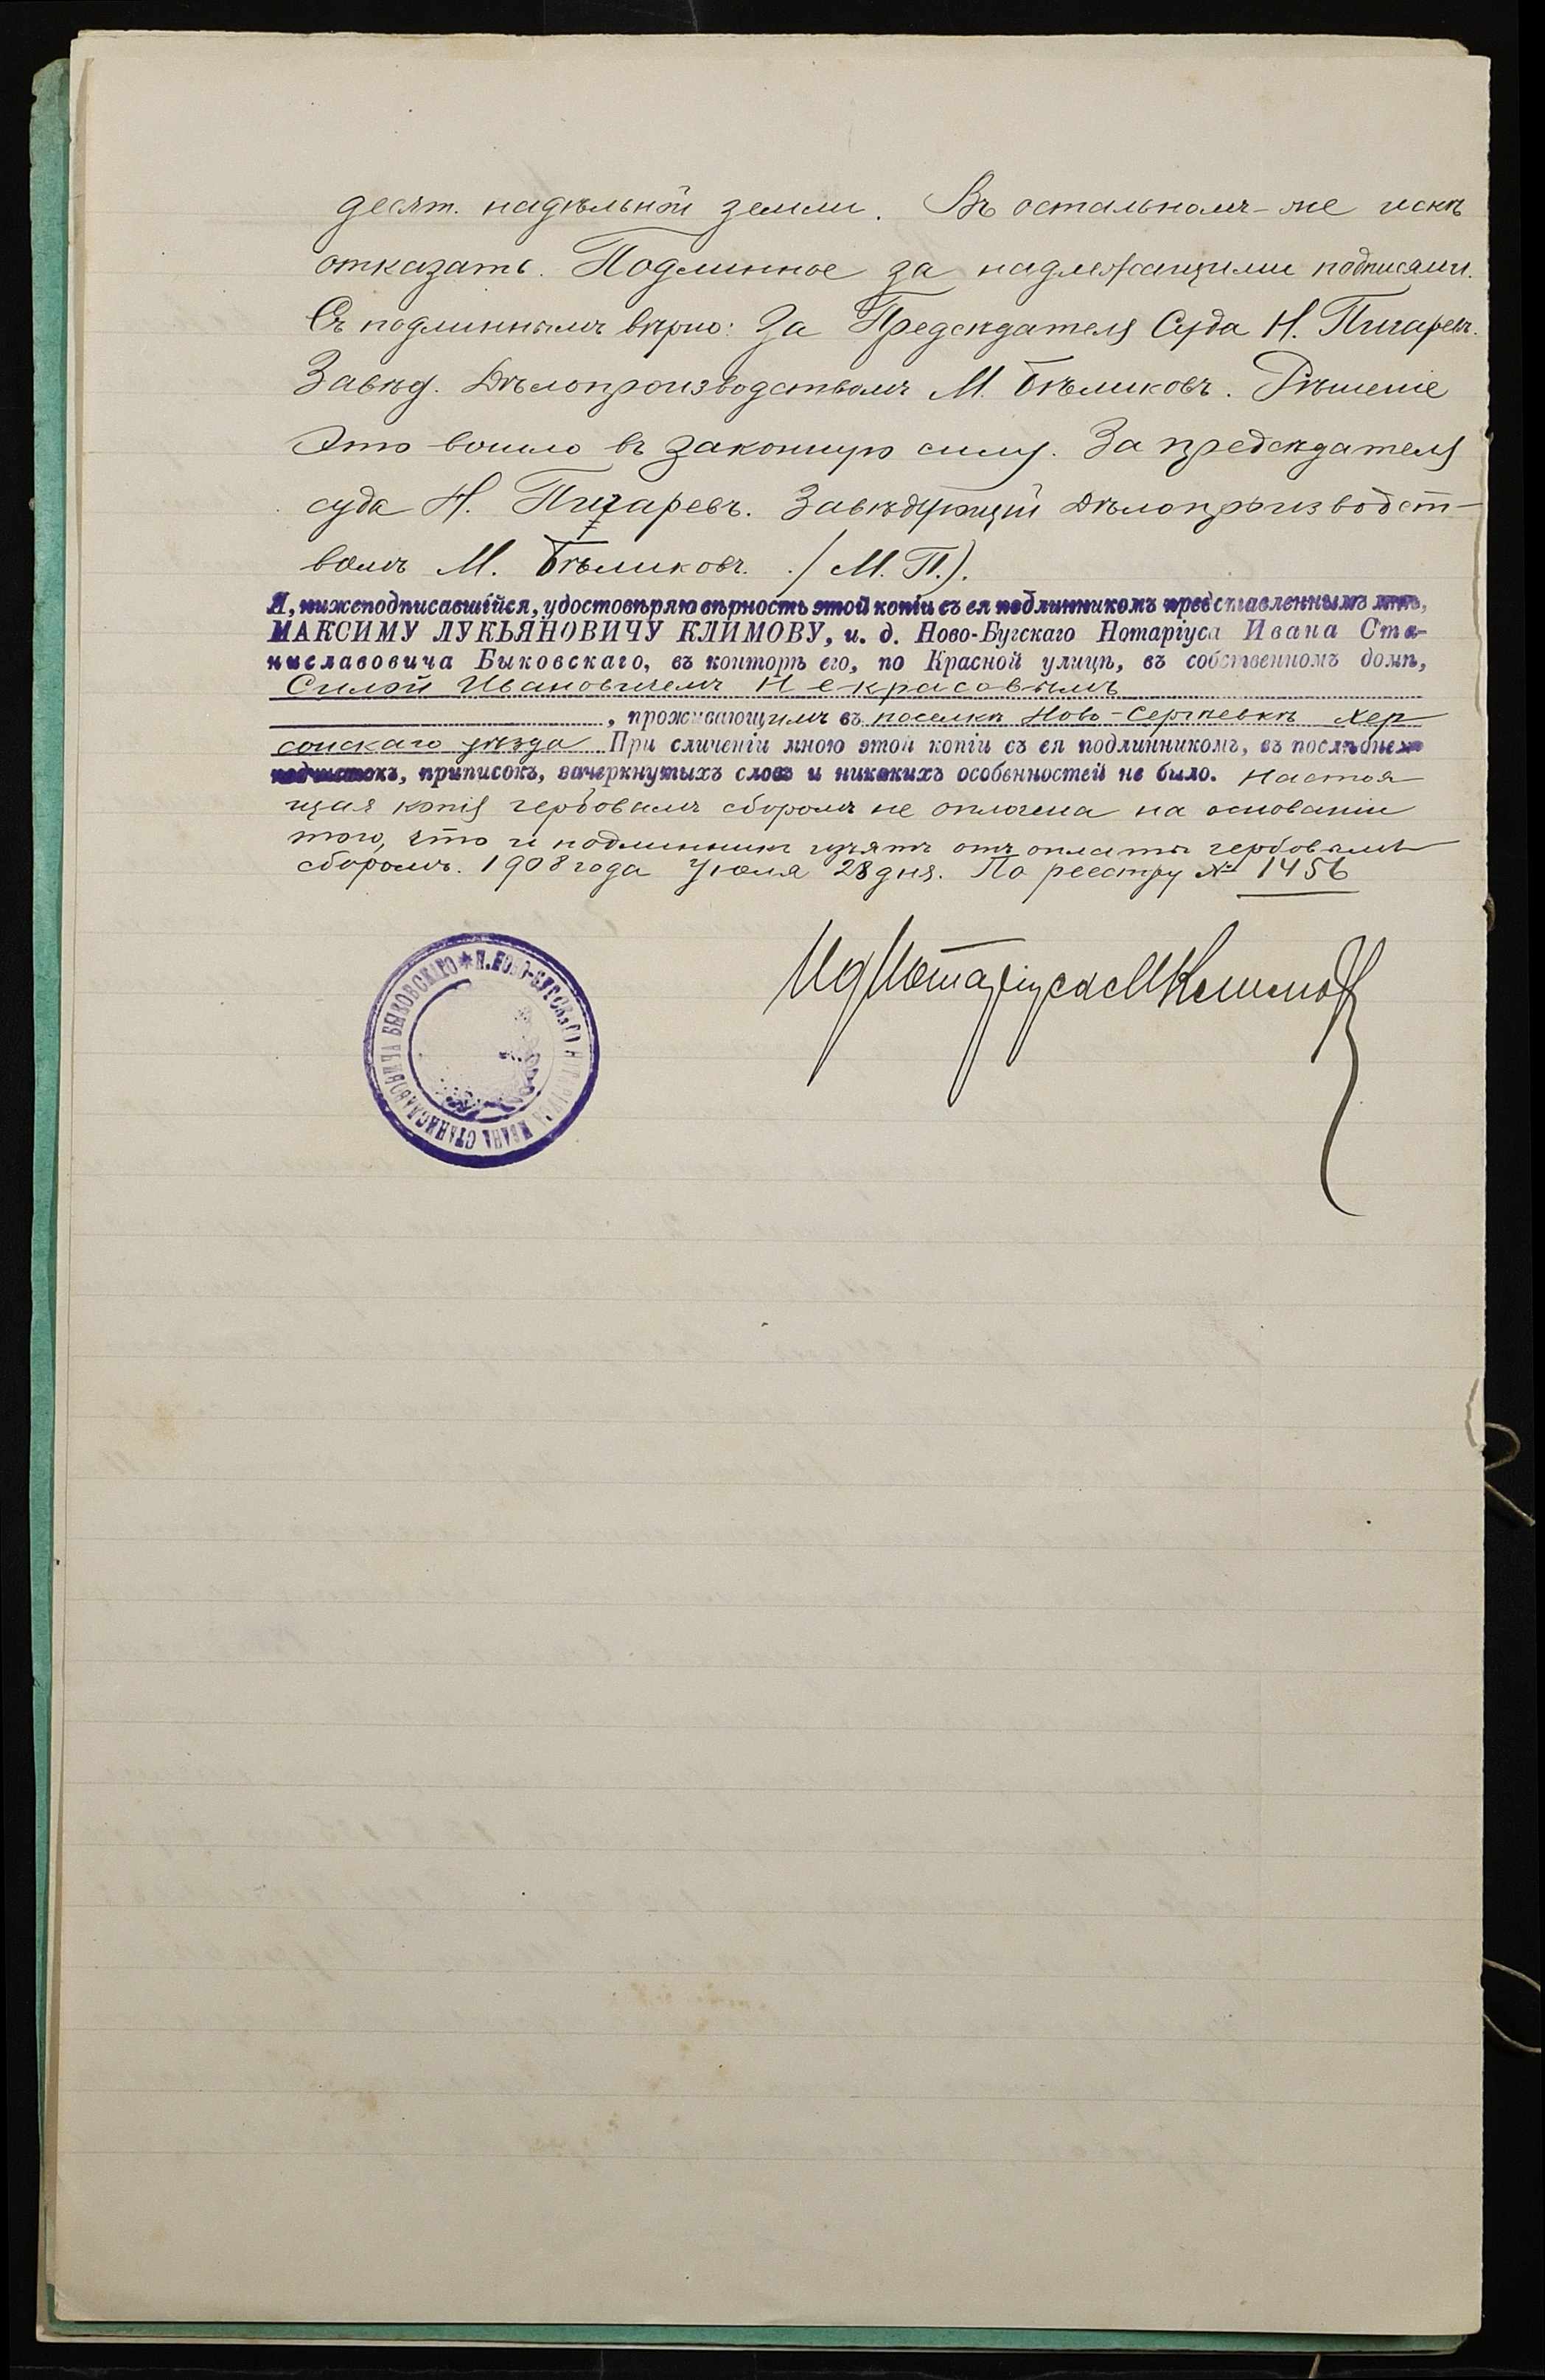 десят. надѣльной земли. Въ остальномъ-же искѣ
отказать. Подлинное за надлежащими подписями.
Съ подлиннымъ вѣрно: За Предсѣдателя Суда Н. Пигаревъ.
Завѣд. Дѣлопроизводствомъ М. Бѣликовъ. Рѣшеніе
это вошло въ законную силу. За предсѣдателя
суда Н. Пигаревъ. Завѣдующій дѣлопроизводст-
вомъ М. Бѣликовъ. /М. П.).
Я, нижеподписавшійся, удостовѣряю вѣрность этой копіи съ ея подлинникомъ представленнымъ мнѣ,
МАКСИМУ ЛУКЬЯНОВИЧУ КЛИМОВУ, и. д. Ново-Бугскаго Нотаріуса Ивана Ста-
ниславовича Быковскаго, въ конторѣ его, по Красной улицѣ, въ собственномъ домѣ,
Силой Ивановичемъ Некрасовымъ
, проживающимъ въ поселкѣ Ново-Сергѣевкѣ Хер
сонскаго уѣзда При сличеніи мною этой копіи съ ея подлинникомъ, въ послѣднемъ
подчистокъ, приписокъ, зачеркнутыхъ словъ и никакихъ особенностей не было. Настоя
щая копія гербовымъ сборомъ не оплачена на основаніи
того, что и подлинникъ изъятъ отъ оплаты гербовымъ
сборомъ. 1908 года Іюля 28 дня. По реестру № 1456
Ид Нотаріуса М Климовъ
И. НОВО-БУГСКАГО НОТАРІУСА ИВАНА СТАНИСЛАВОВИЧА БЫКОВСКАГО